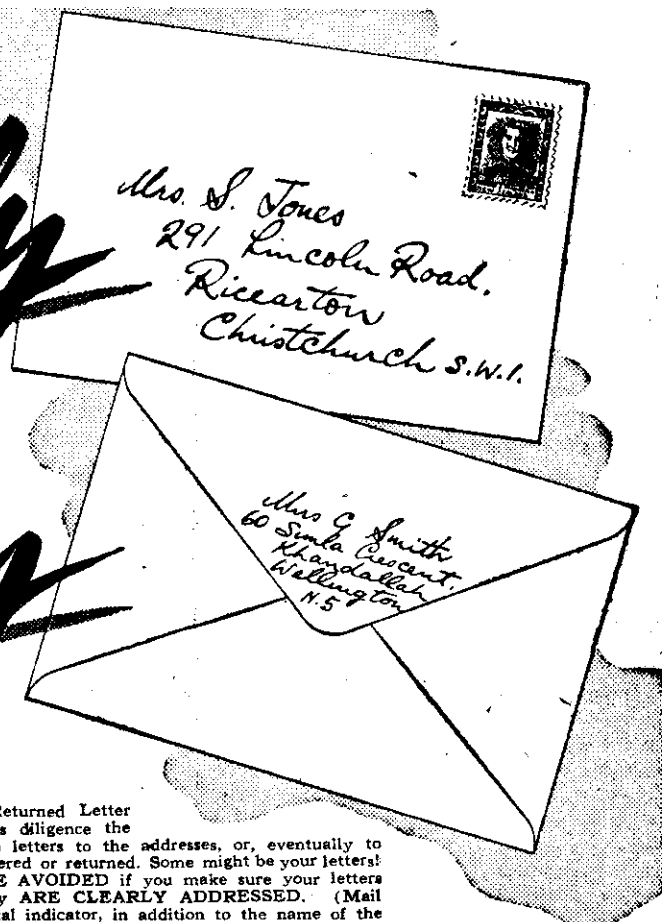 Mrs. S. Jones
291 Lincoln Road,
Riccarton
Christchurch S.W.1.
Mrs G Smith
60 Simla Crescent.
Khandallah
Wellington
N.5
Returned Letter
s diligence the
letters to the addresses, or, eventually to
ered or returned. Some might be your letters!
E AVOIDED if you make sure your letters
y ARE CLEARLY ADDRESSED. (Mail
al indicator, in addition to the name of the